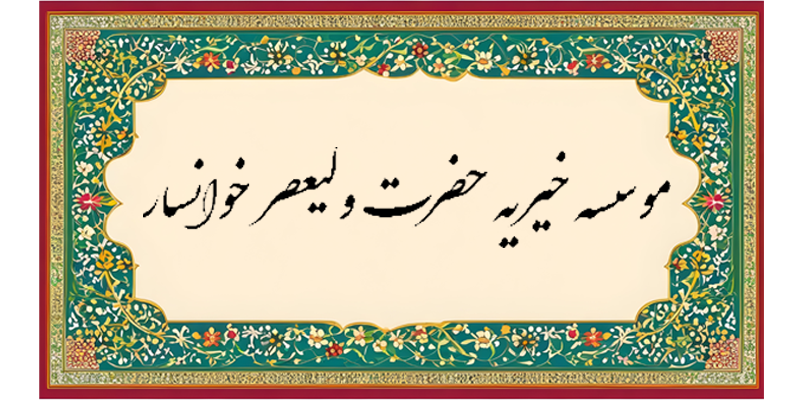 موسسه خیریه حضرت ولیعصر خوانسار